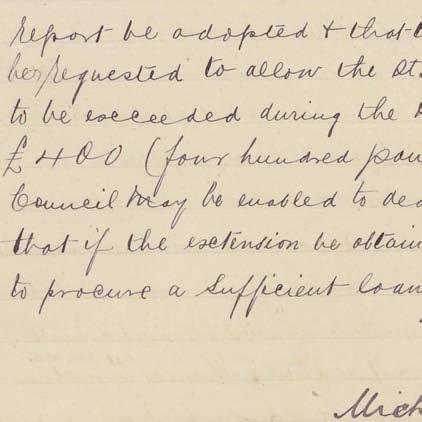 report be adopted & that
be requested to allow the St.
to be exceeded during the
£400 (four hundred pou
Council may be enabled to dea
that if the extension be obtain
to procure a sufficient loan
Mich